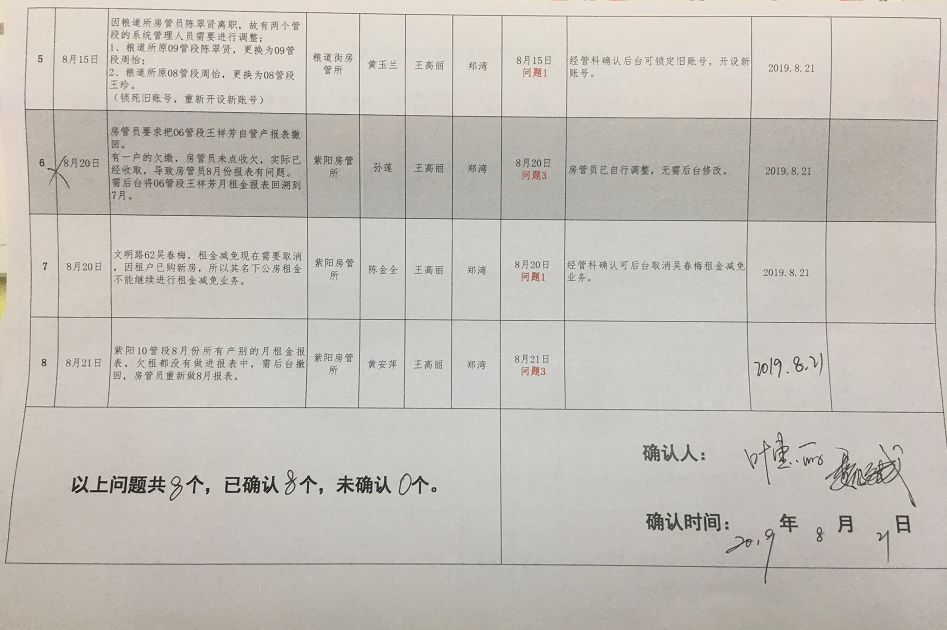 5
8月15日
因粮道所房管员陈翠贤离职，故有两个管
段的系统管理人员需要进行调整：
1、粮道所原09管段陈翠贤，更换为09管
段周怡；
2、粮道所原08管段周怡，更换为08管段
王珍。
（锁死旧账号，重新开设新账号）
粮道街房
管所
黄玉兰
王高丽
郑湾
8月15日
问题1
经管科确认后台可锁定旧账号，开设新
账号。
2019.8.21
6
8月20日
房管员要求把06管段王祥芳自管产报表撤
回。
有一户的欠缴，房管员未点收欠，实际已
经收取，导致房管员8月份报表有问题。
需后台将06管段王祥芳月租金报表回溯到
7月。
紫阳房管
所
孙莲
王高丽
郑湾
8月20日
问题3
房管员已自行调整，无需后台修改。
2019.8.21
7
8月20日
文明路62吴春梅，租金减免现在需要取消
，因租户已购新房，所以其名下公房租金
不能继续进行租金减免业务。
紫阳房管
所
陈金全
王高丽
郑湾
8月20日
问题1
经管科确认可后台取消吴春梅租金减免
业务。
2019.8.21
8
8月21日
紫阳10管段8月份所有产别的月租金报
表，欠租都没有做进报表中，需后台撤
回，房管员重新做8月报表。
紫阳房管
所
黄安萍
王高丽
郑湾
8月21日
问题3
2019.8.21
以上问题共8个，已确认8个，未确认0个。
确认人：叶惠丽
确认时间：2019年8月21日